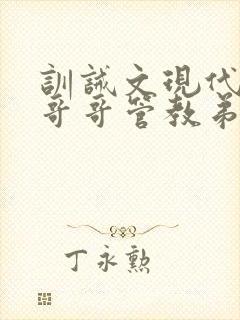 訓誡文現代
哥哥管教弟
丁永勲